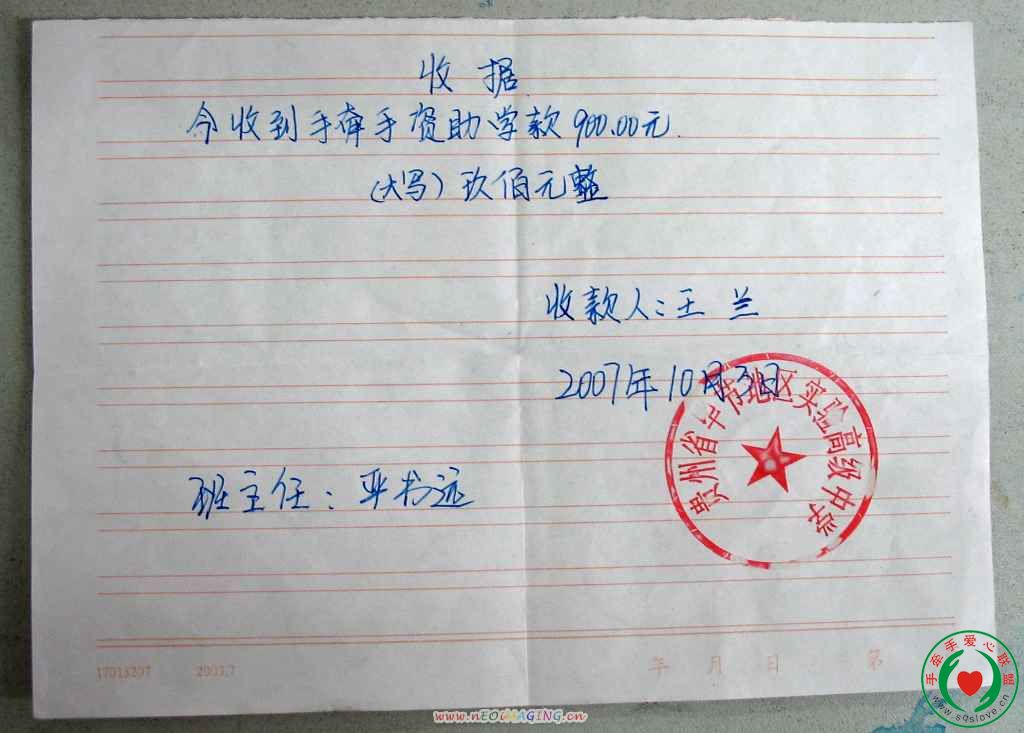 收据
今收到手牵手资助学款900.00元.
(大写)玖佰元整
收款人:王兰
2007年10月31日
贵州省毕节地区实验高级中学
班主任:
17013207 2003.7
年 月 日 第
www.nEOiMAGING.cn
手牵手爱心联盟
www.sqslove.cn